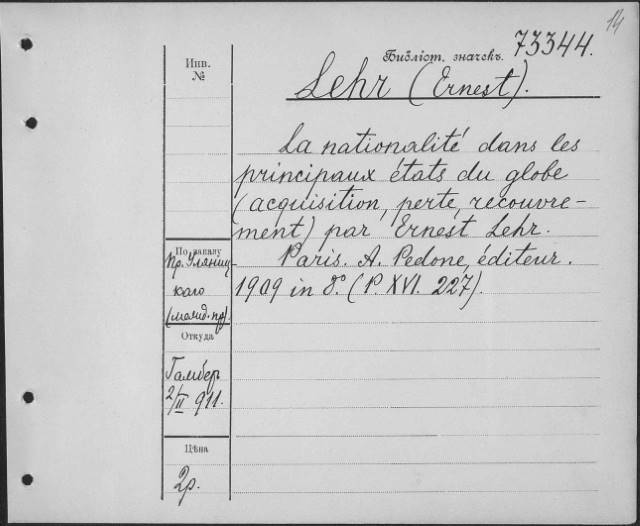 14
Библіот. значекъ. 73344.
Инв.
№
Lehr (Ernest).
La nationalité dans les
principaux états du globe
(acquisition, perte, recouvre-
ment) par Ernest Lehr.
Paris. A. Pedone, éditeur.
1909 in 8.º (P. XVI. 227).
По заказу
Пр. Уляниц-
каго
Откуда
2/II 911.
Цѣна
2р.